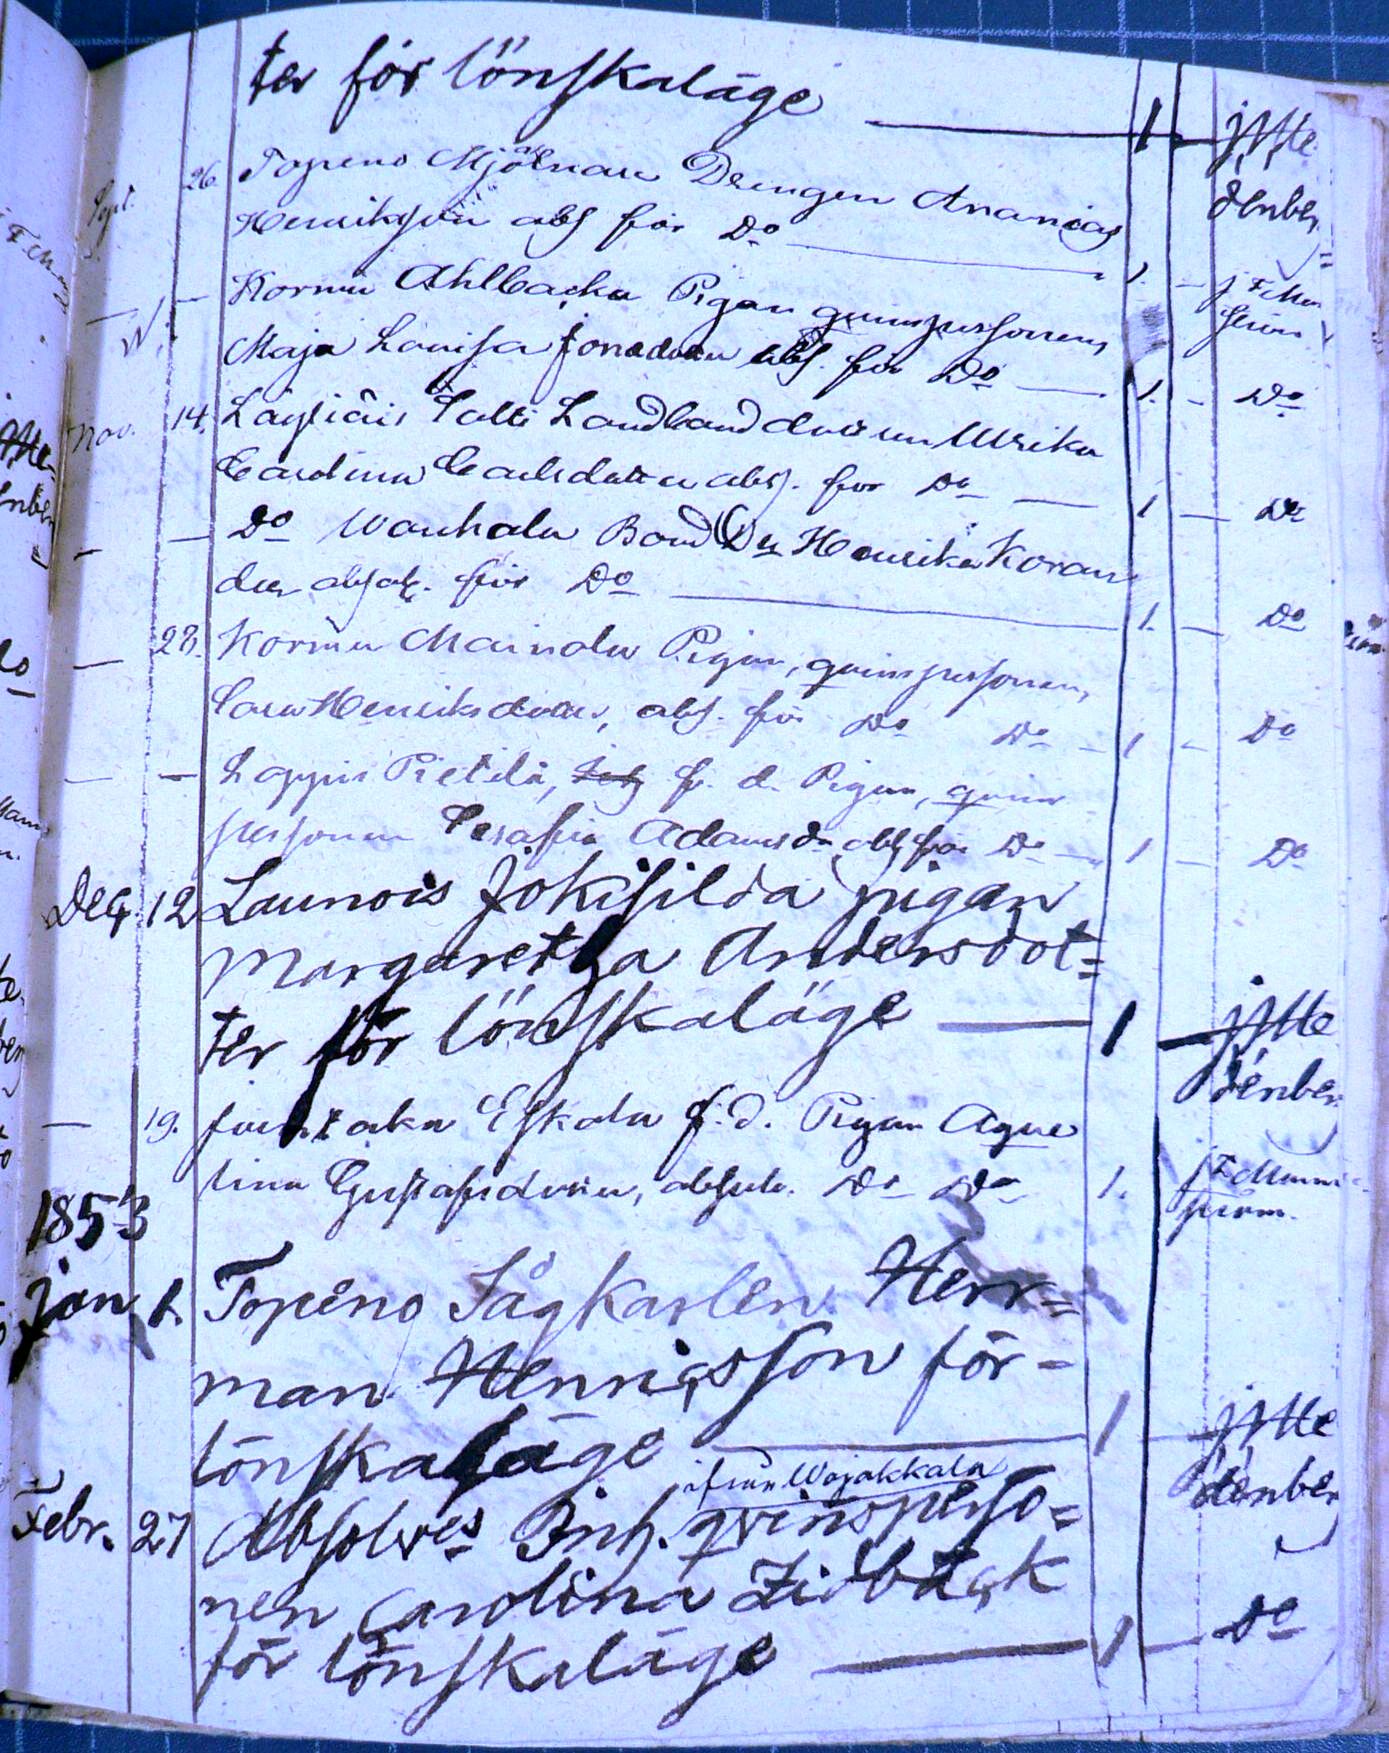 ter för lönskaläge — 1 —
26. Topeno Mjölnare Drengen Ananias denber
Sept.
Henriksson abs för Do — 1. —
— — Kormu Ahlbacka Pigan qvinspersonen,
Maja Lovisa Jonsdotter abs. för Do — 1. — Do
Nov. 14. Läyliäis Talli Landbonddottren Ulrika
Carolina Carlsdotter abs. för Do — 1 — Do
— — Do Wanhala Bond Henrik Koran
der absol. för Do — 1. — Do
— 28. Kormu Mainala Pigan, qvinspersonen,
Sara Henriksdotter, abs. för Do Do — 1 — Do
— — Loppis Pietilä, f. d. Pigan, qvins
personen Serafia Adamsdr abs för Do — 1 — Do
Dec. 12 Launois Jokisilda pigan
Margaretha Andersdot=
ter för lönskaläge — 1 —
denber
— 19. Eskola f.d. Pigan Agne
lina Gustafsdotter, absol. Do Do 1.
1853
Jan 1. Topeno Sågkarlen Herr=
man Henricsson för-
lönskaläge — 1 —
ifrån Wojakkala denber
Febr. 27 Absolves Inh. qvinsperso=
nen Carolina Lidbäck
för lönskaläge — 1 — Do